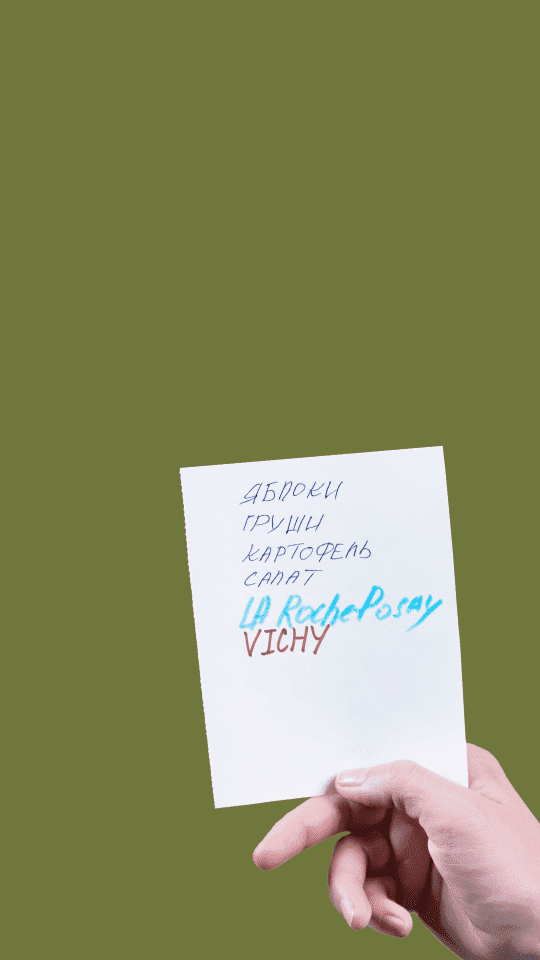 ЯБЛОКИ
ГРУШИ
КАРТОФЕЛЬ
САЛАТ
LA RochePosay
VICHY